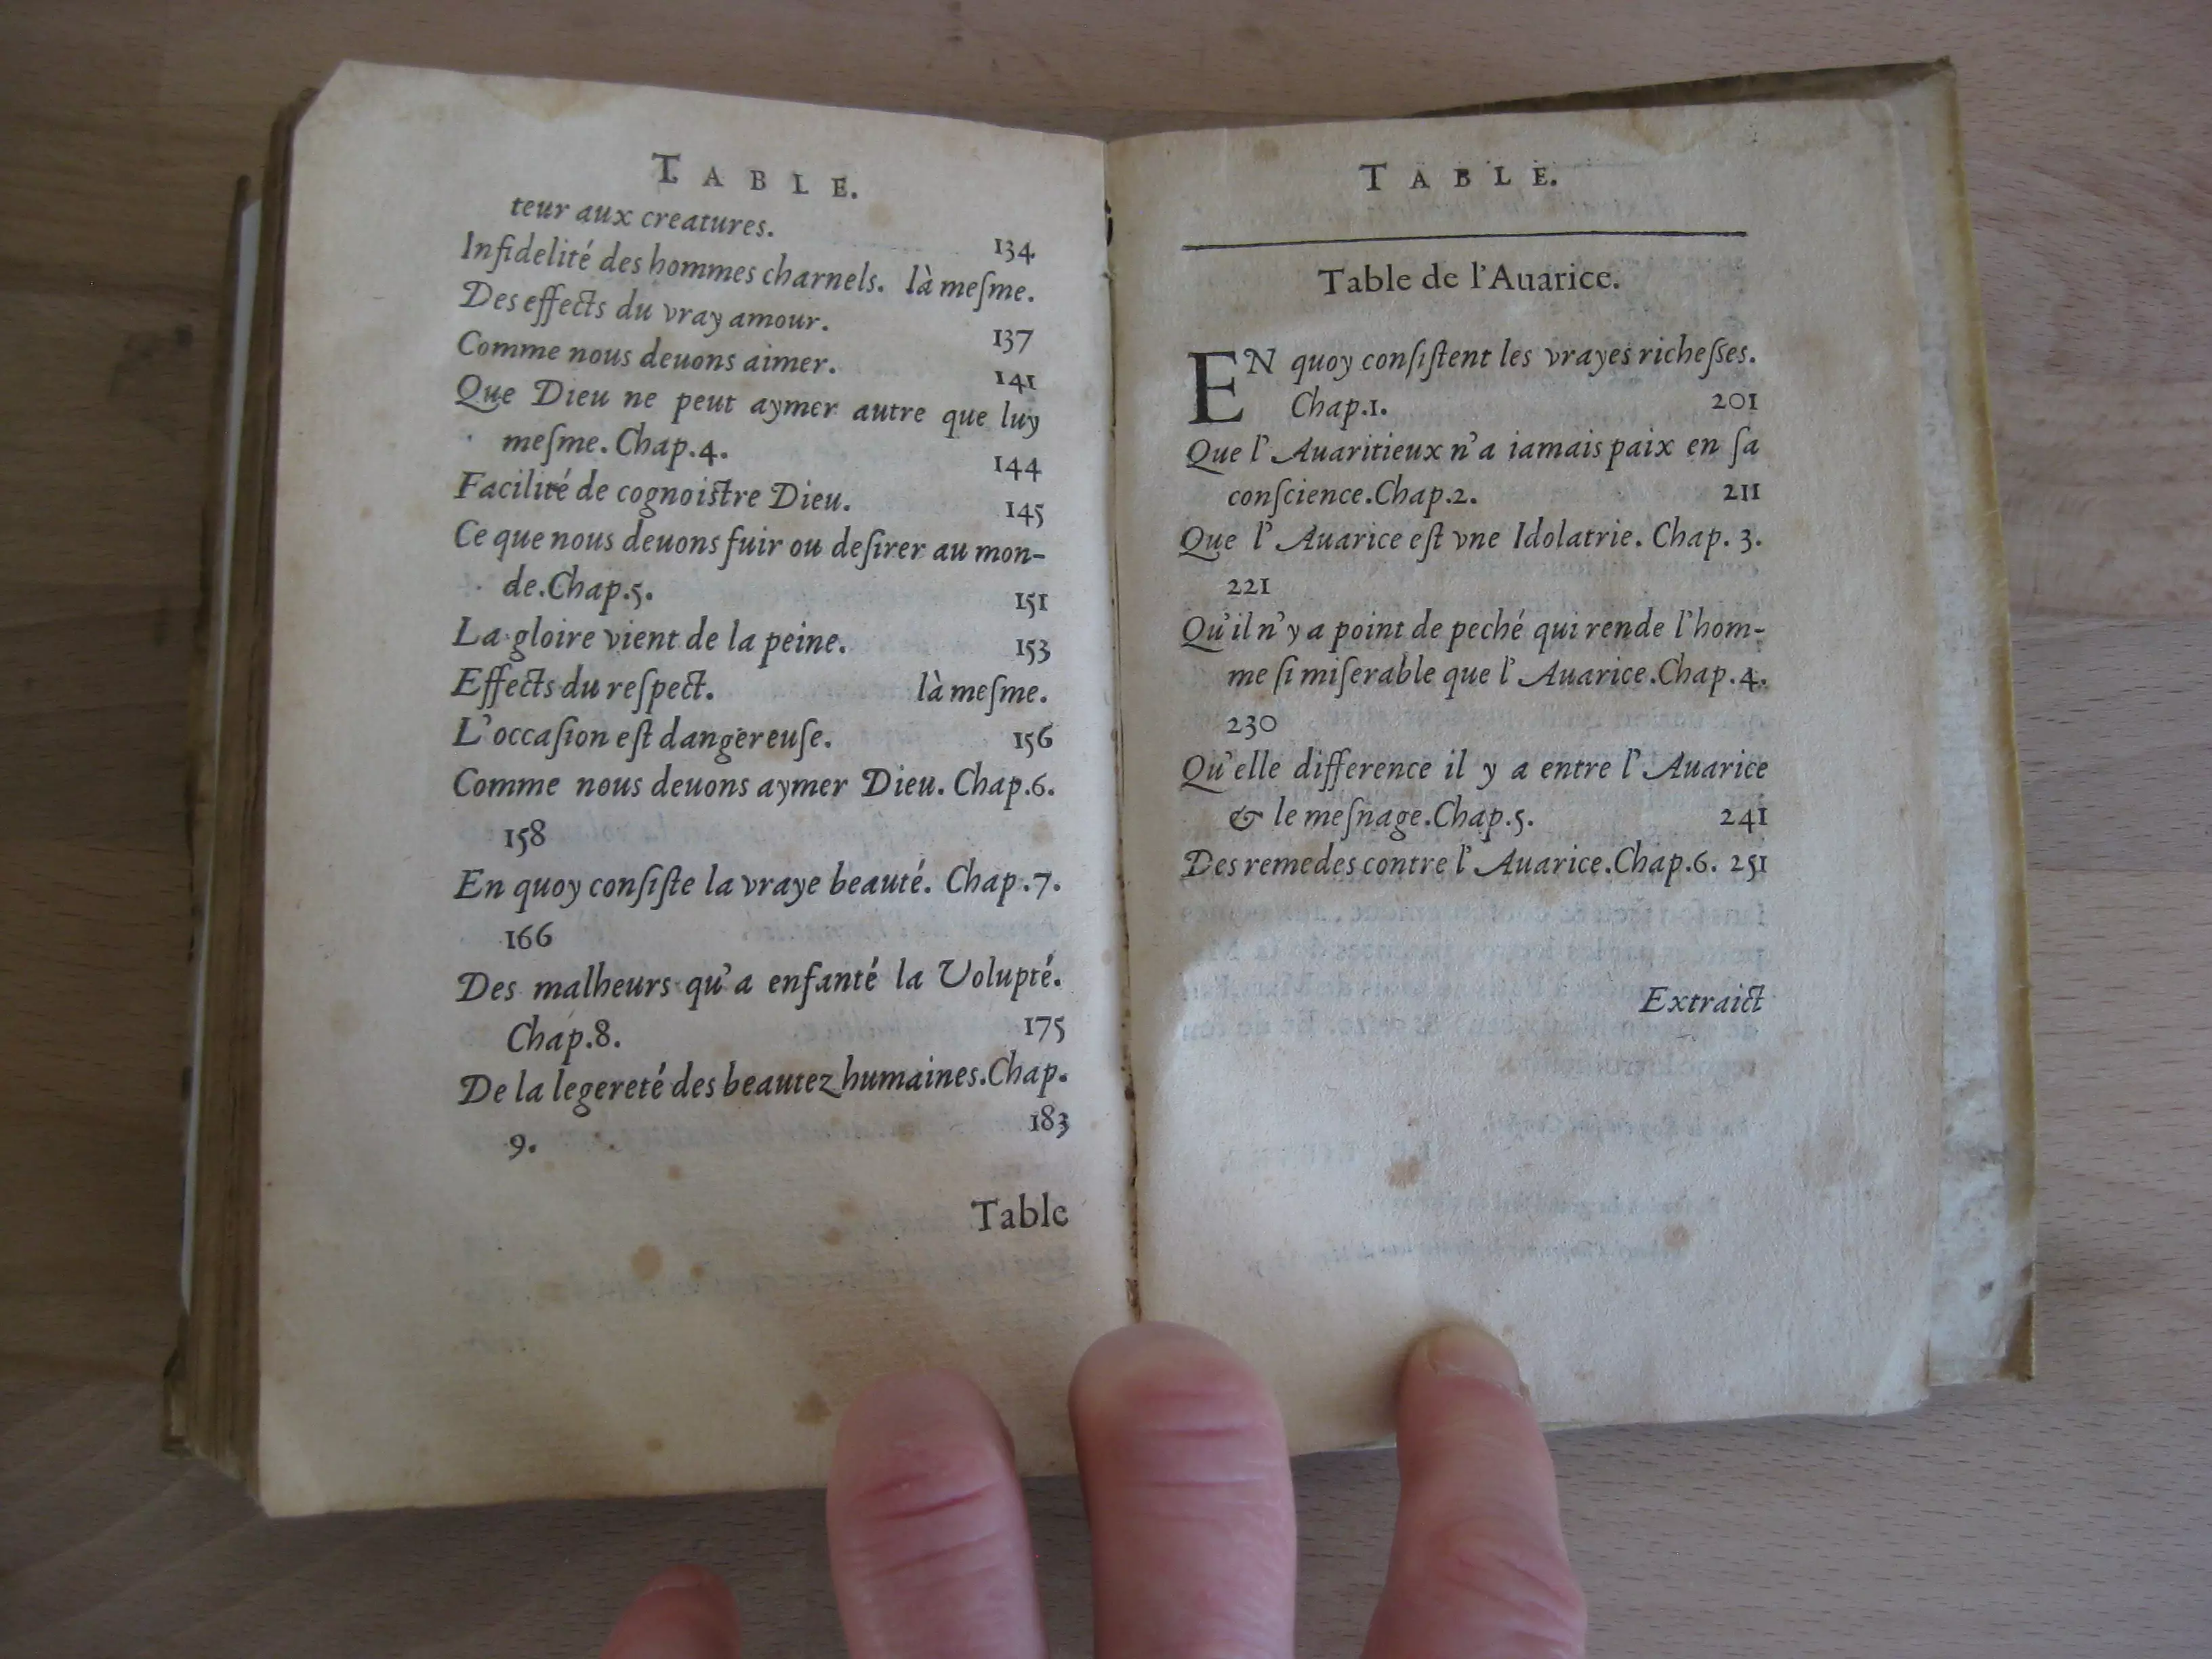 TABLE.
teur aux creatures. 134
Infidelité des hommes charnels. là meſme.
Des effects du vray amour. 137
Comme nous deuons aimer. 141
Que Dieu ne peut aymer autre que luy
meſme. Chap.4. 144
Facilité de cognoiſtre Dieu. 145
Ce que nous deuons fuir ou deſirer au mon-
de.Chap.5. 151
La gloire vient de la peine. 153
Effects du reſpect. là meſme.
L'occaſion eſt dangereuſe. 156
Comme nous deuons aymer Dieu. Chap.6.
158
En quoy conſiſte la vraye beauté. Chap.7.
166
Des malheurs qu'a enfanté la Volupté.
Chap.8. 175
De la legereté des beautez humaines.Chap.
9. 183
Table
TABLE.
Table de l'Auarice.
EN quoy conſiſtent les vrayes richeſſes.
Chap.1. 201
Que l'Auaritieux n'a iamais paix en ſa
conſcience.Chap.2. 211
Que l'Auarice eſt vne Idolatrie. Chap. 3.
221
Qu'il n'y a point de peché qui rende l'hom-
me ſi miſerable que l'Auarice.Chap.4.
230
Qu'elle difference il y a entre l'Auarice
& le meſnage.Chap.5. 241
Des remedes contre l'Auarice.Chap.6. 251
Extraict